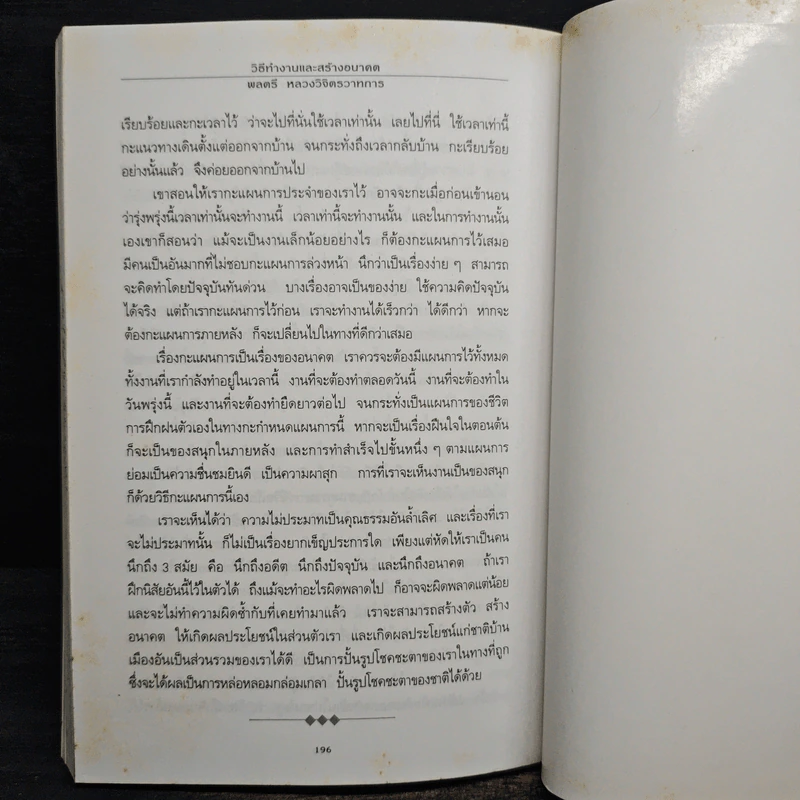 วิธีทำงานและสร้างอนาคต
พลตรี หลวงวิจิตรวาทการ
เรียบร้อยและกะเวลาไว้ ว่าจะไปที่นั่นใช้เวลาเท่านั้น เลยไปที่นี่ ใช้เวลาเท่านี้
กะแนวทางเดินตั้งแต่ออกจากบ้าน จนกระทั่งถึงเวลากลับบ้าน กะเรียบร้อย
อย่างนั้นแล้ว จึงค่อยออกจากบ้านไป
เขาสอนให้เรากะแผนการประจำของเราไว้ อาจจะกะเมื่อก่อนเข้านอน
ว่ารุ่งพรุ่งนี้เวลาเท่านั้นจะทำงานนี้ เวลาเท่านี้จะทำงานนั้น และในการทำงานนั้น
เองเขาก็สอนว่า แม้จะเป็นงานเล็กน้อยอย่างไร ก็ต้องกะแผนการไว้เสมอ
มีคนเป็นอันมากที่ไม่ชอบกะแผนการล่วงหน้า นึกว่าเป็นเรื่องง่าย ๆ สามารถ
จะคิดทำโดยปัจจุบันทันด่วน บางเรื่องอาจเป็นของง่าย ใช้ความคิดปัจจุบัน
ได้จริง แต่ถ้าเรากะแผนการไว้ก่อน เราจะทำงานได้เร็วกว่า ได้ดีกว่า หากจะ
ต้องกะแผนการภายหลัง ก็จะเปลี่ยนไปในทางที่ดีกว่าเสมอ
เรื่องกะแผนการเป็นเรื่องของอนาคต เราควรจะต้องมีแผนการไว้ทั้งหมด
ทั้งงานที่เรากำลังทำอยู่ในเวลานี้ งานที่จะต้องทำตลอดวันนี้ งานที่จะต้องทำใน
วันพรุ่งนี้ และงานที่จะต้องทำยืดยาวต่อไป จนกระทั่งเป็นแผนการของชีวิต
การฝึกฝนตัวเองในทางกะกำหนดแผนการนี้ หากจะเป็นเรื่องฝืนใจในตอนต้น
ก็จะเป็นของสนุกในภายหลัง และการทำสำเร็จไปขั้นหนึ่ง ๆ ตามแผนการ
ย่อมเป็นความชื่นชมยินดี เป็นความผาสุก การที่เราจะเห็นงานเป็นของสนุก
ก็ด้วยวิธีกะแผนการนี้เอง
เราจะเห็นได้ว่า ความไม่ประมาทเป็นคุณธรรมอันล้ำเลิศ และเรื่องที่เรา
จะไม่ประมาทนั้น ก็ไม่เป็นเรื่องยากเข็ญประการใด เพียงแต่หัดให้เราเป็นคน
นึกถึง 3 สมัย คือ นึกถึงอดีต นึกถึงปัจจุบัน และนึกถึงอนาคต ถ้าเรา
ฝึกนิสัยอันนี้ไว้ในตัวได้ ถึงแม้จะทำอะไรผิดพลาดไป ก็อาจจะผิดพลาดแต่น้อย
และจะไม่ทำความผิดซ้ำกับที่เคยทำมาแล้ว เราจะสามารถสร้างตัว สร้าง
อนาคต ให้เกิดผลประโยชน์ในส่วนตัวเรา และเกิดผลประโยชน์แก่ชาติบ้าน
เมืองอันเป็นส่วนรวมของเราได้ดี เป็นการปั้นรูปโชคชะตาของเราในทางที่ถูก
ซึ่งจะได้ผลเป็นการหล่อหลอมกล่อมเกลา ปั้นรูปโชคชะตาของชาติได้ด้วย
196